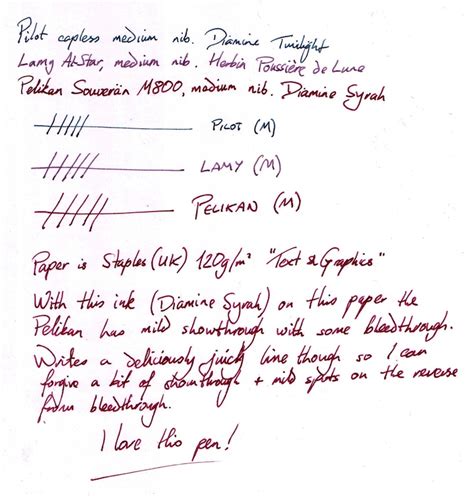 Pilot capless medium nib. Diamine Twilight
Lamy AlStar, medium nib. Herbin Poussière de Lune
Pelikan Souverän M800, medium nib. Diamine Syrah
PILOT (M)
LAMY (M)
PELIKAN (M)
Paper is Staples (UK) 120g/m² "Text & Graphics"
With this ink (Diamine Syrah) on this paper the
Pelikan has mild showthrough with some bleedthrough.
Writes a deliciously juicy line though so I can
forgive a bit of showthrough + mild spots on the reverse
from bleedthrough.
I love this pen!